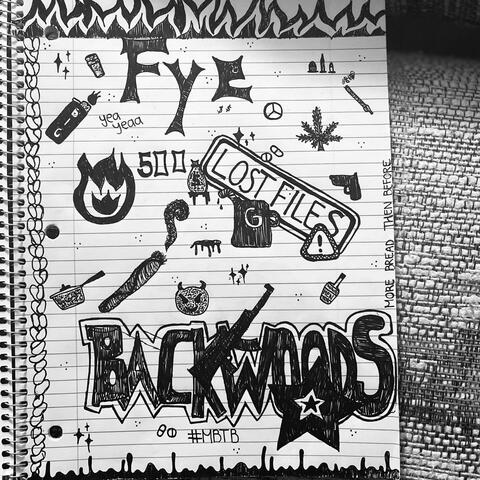 FYE
yea
yeaa
$$
500
LOST FILES
G
MORE BREAD THEN BEFORE
BACKWOODS
#MBTB